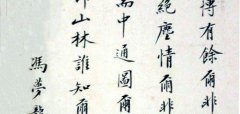 得有餘爾非
絕塵情爾非
而中通圖爾
山林誰知爾
馮夢